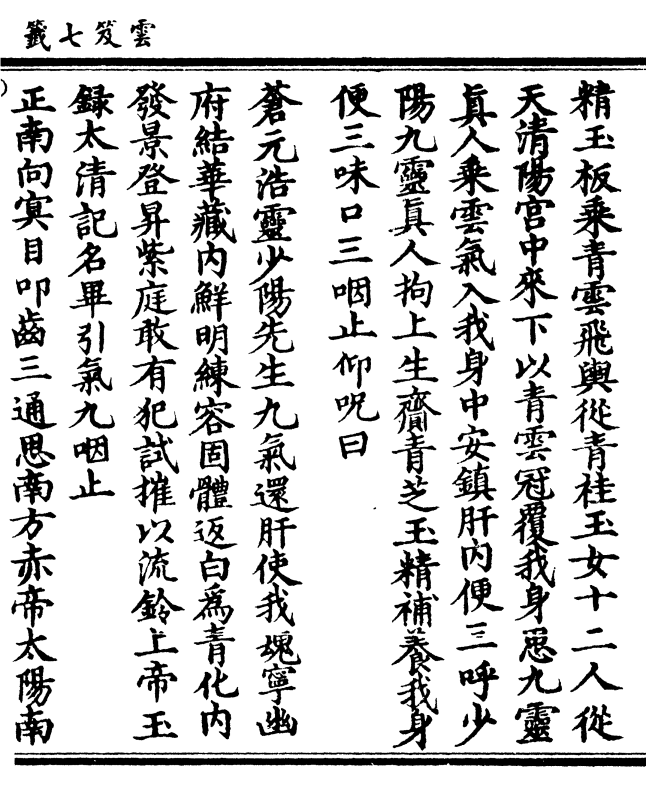 雲笈七籤
精玉板乘青雲飛輿從青桂玉女十二人從
天清陽宫中來下以青雲冠覆我身思九靈
真人乘雲氣入我身中安鎮肝内便三呼少
陽九靈真人拘上生齎青芝玉精補養我身
便三味口三咽止仰呪曰
蒼元浩靈少陽先生九氣還肝使我魂寧幽
府結華藏内鮮明練容固體返白爲青化内
發景登昇紫庭敢有犯試摧以流鈴上帝玉
録太清記名畢引氣九咽止
正南向㝠目叩齒三通思南方赤帝太陽南